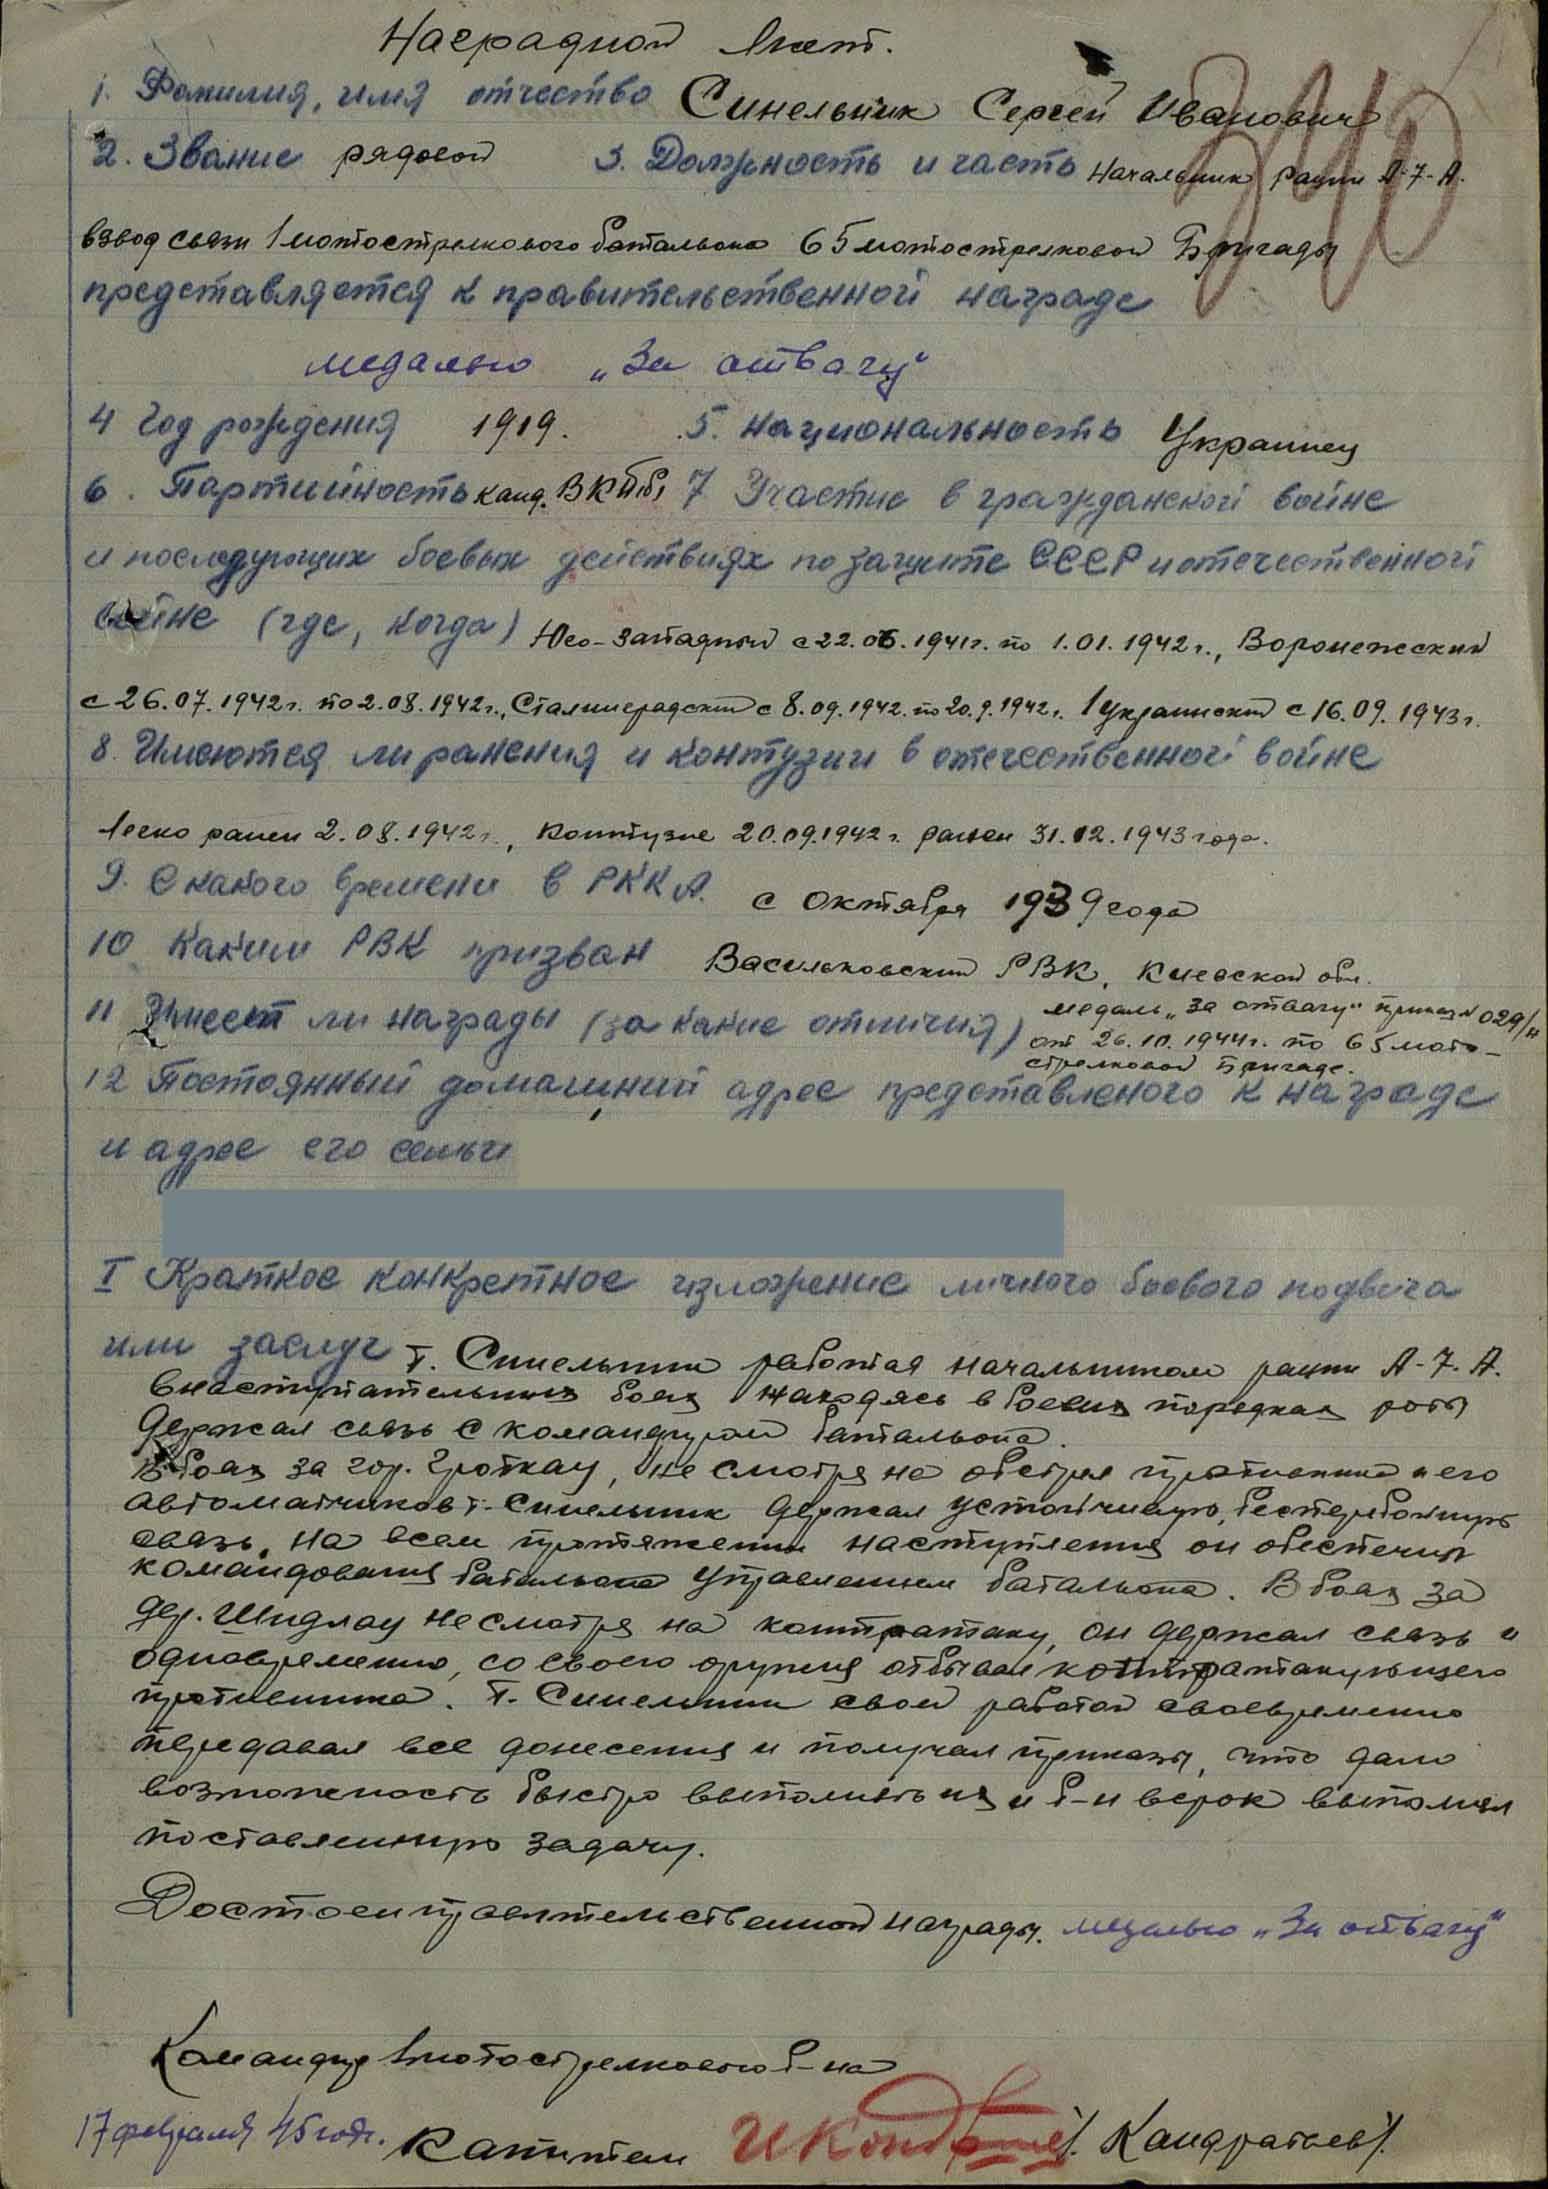 Наградной лист.
340
1. Фамилия, имя отчество Синельник Сергей Иванович
2. Звание рядовой 3. Должность и часть Начальник рации А-7-А.
взвод связи 1 мотострелкового батальона 65 мотострелковой Бригады
представляется к правительственной награде
медалью „За отвагу"
4 Год рождения 1919. 5. Национальность Украинец
6. Партийность канд. ВКП(б) 7 Участие в гражданской войне
и последующих боевых действиях по защите СССР и отечественной
войне (где, когда) Юго-западный с 22.06.1941г. по 1.01.1942г., Воронежский
с 26.07.1942г. по 2.08.1942г., Сталинградский с 8.09.1942. по 20.9.1942г. 1 украинский с 16.09.1943г.
8. Имеются ли ранения и контузии в отечественной войне
Легко ранен 2.08.1942г., контузие 20.09.1942г. ранен 31.12.1943 года.
9. С какого времени в РККА. с октября 1939 года
10 Каким РВК призван Васильковский РВК, Киевской обл.
11 Имеет ли награды (за какие отличия) медаль „за отвагу" приказ № 029/н
от 26.10.1944г. по 65 мото-
стрелковой Бригаде.
12 Постоянный домашний адрес представленого к награде
и адрес его семьи
I Краткое конкретное изложение личного боевого подвига
или заслуг т. Синельник работая начальником рации А-7.А.
в наступательных боях находясь в боевых порядках роты
держал связь с командиром батальона.
В боях за гор. Гроткау, не смотря на обстрел противника и его
автоматчиков т. Синельник держал устойчивую, бесперебойную
связь. На всем протяжении наступления он обеспечил
командования батальона управлением батальона. В боях за
дер. Шидлау несмотря на контратаку, он держал связь и
одновременно, со своего оружия отбивал контратакующего
противника. т. Синельник своей работой своевременно
передавал все донесения и получал приказы, что дало
возможность быстро выполнять их и б-н в срок выполнял
поставленную задачу.
Достоен правительственной награды. медалью „За отвагу"
Командир 1 мотострелкового б-на
17 февраля 45 год. Капитан ИКондратьев /. Кандратьев/.